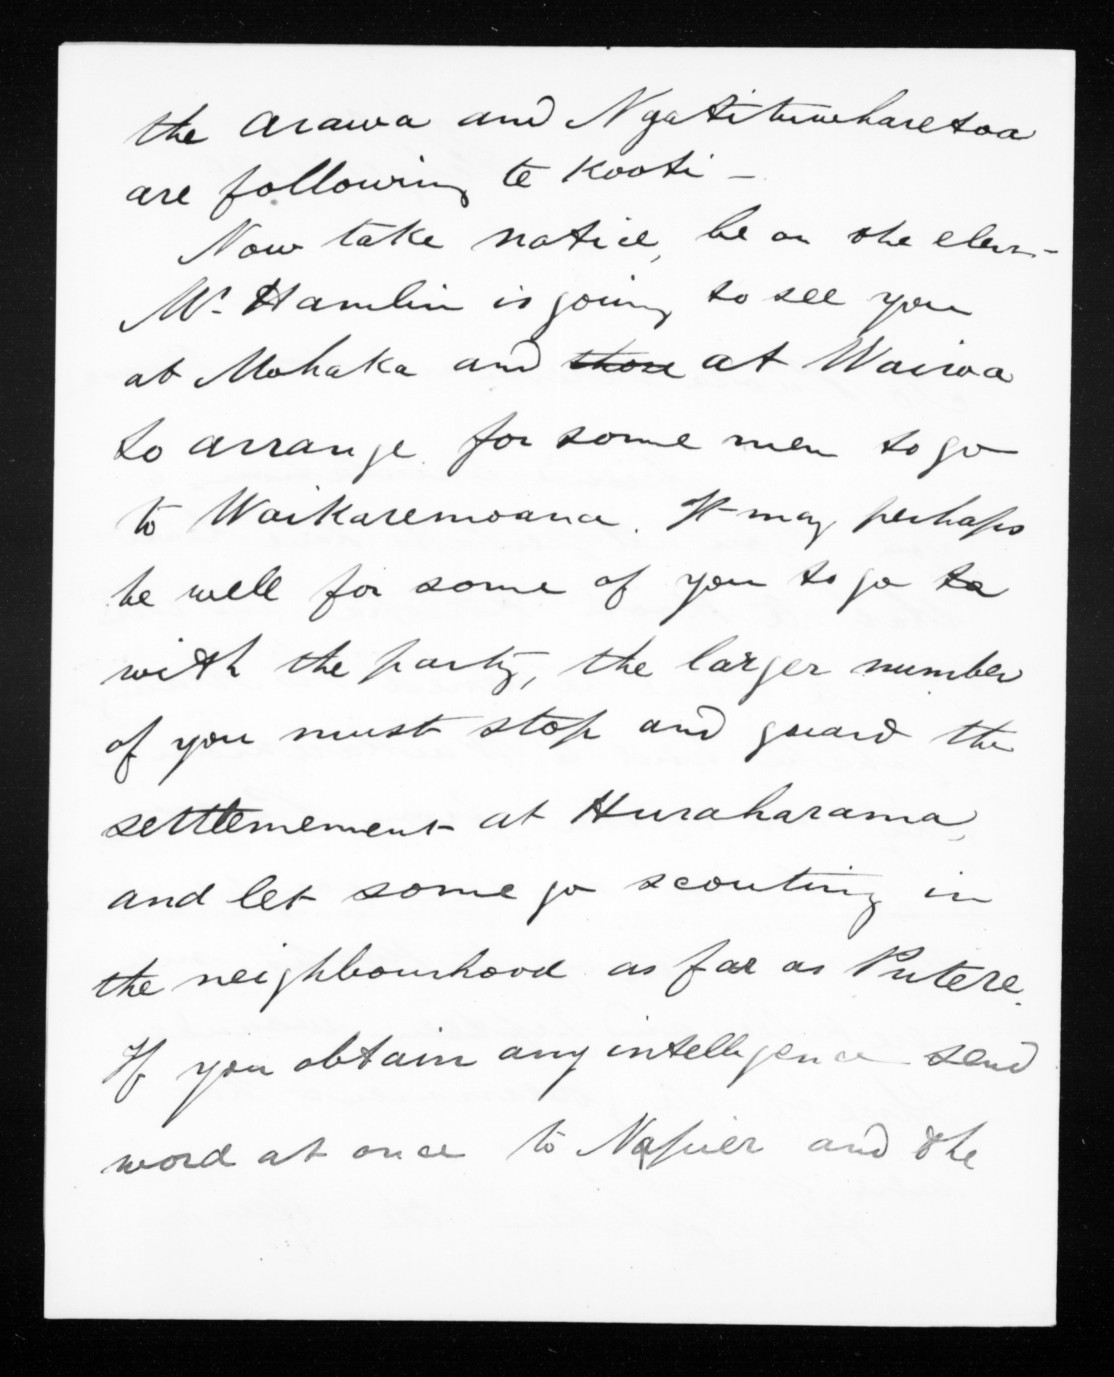 the Arawa and Ngatituwharetoa
are following te Kooti –
Now take notice, be on the
Mr. Hamlin is going to see you
at Mohaka and those at Wairoa
to arrange for some men to go
to Waikaremoana. It may perhaps
be well for some of you to go to
with the party, the larger number
of you must stop and guard the
settlemement at Huraharama,
and let some go scouting in
the neighbourhood as far as Putere.
If you obtain any intelligence send
word at once to Napier and the